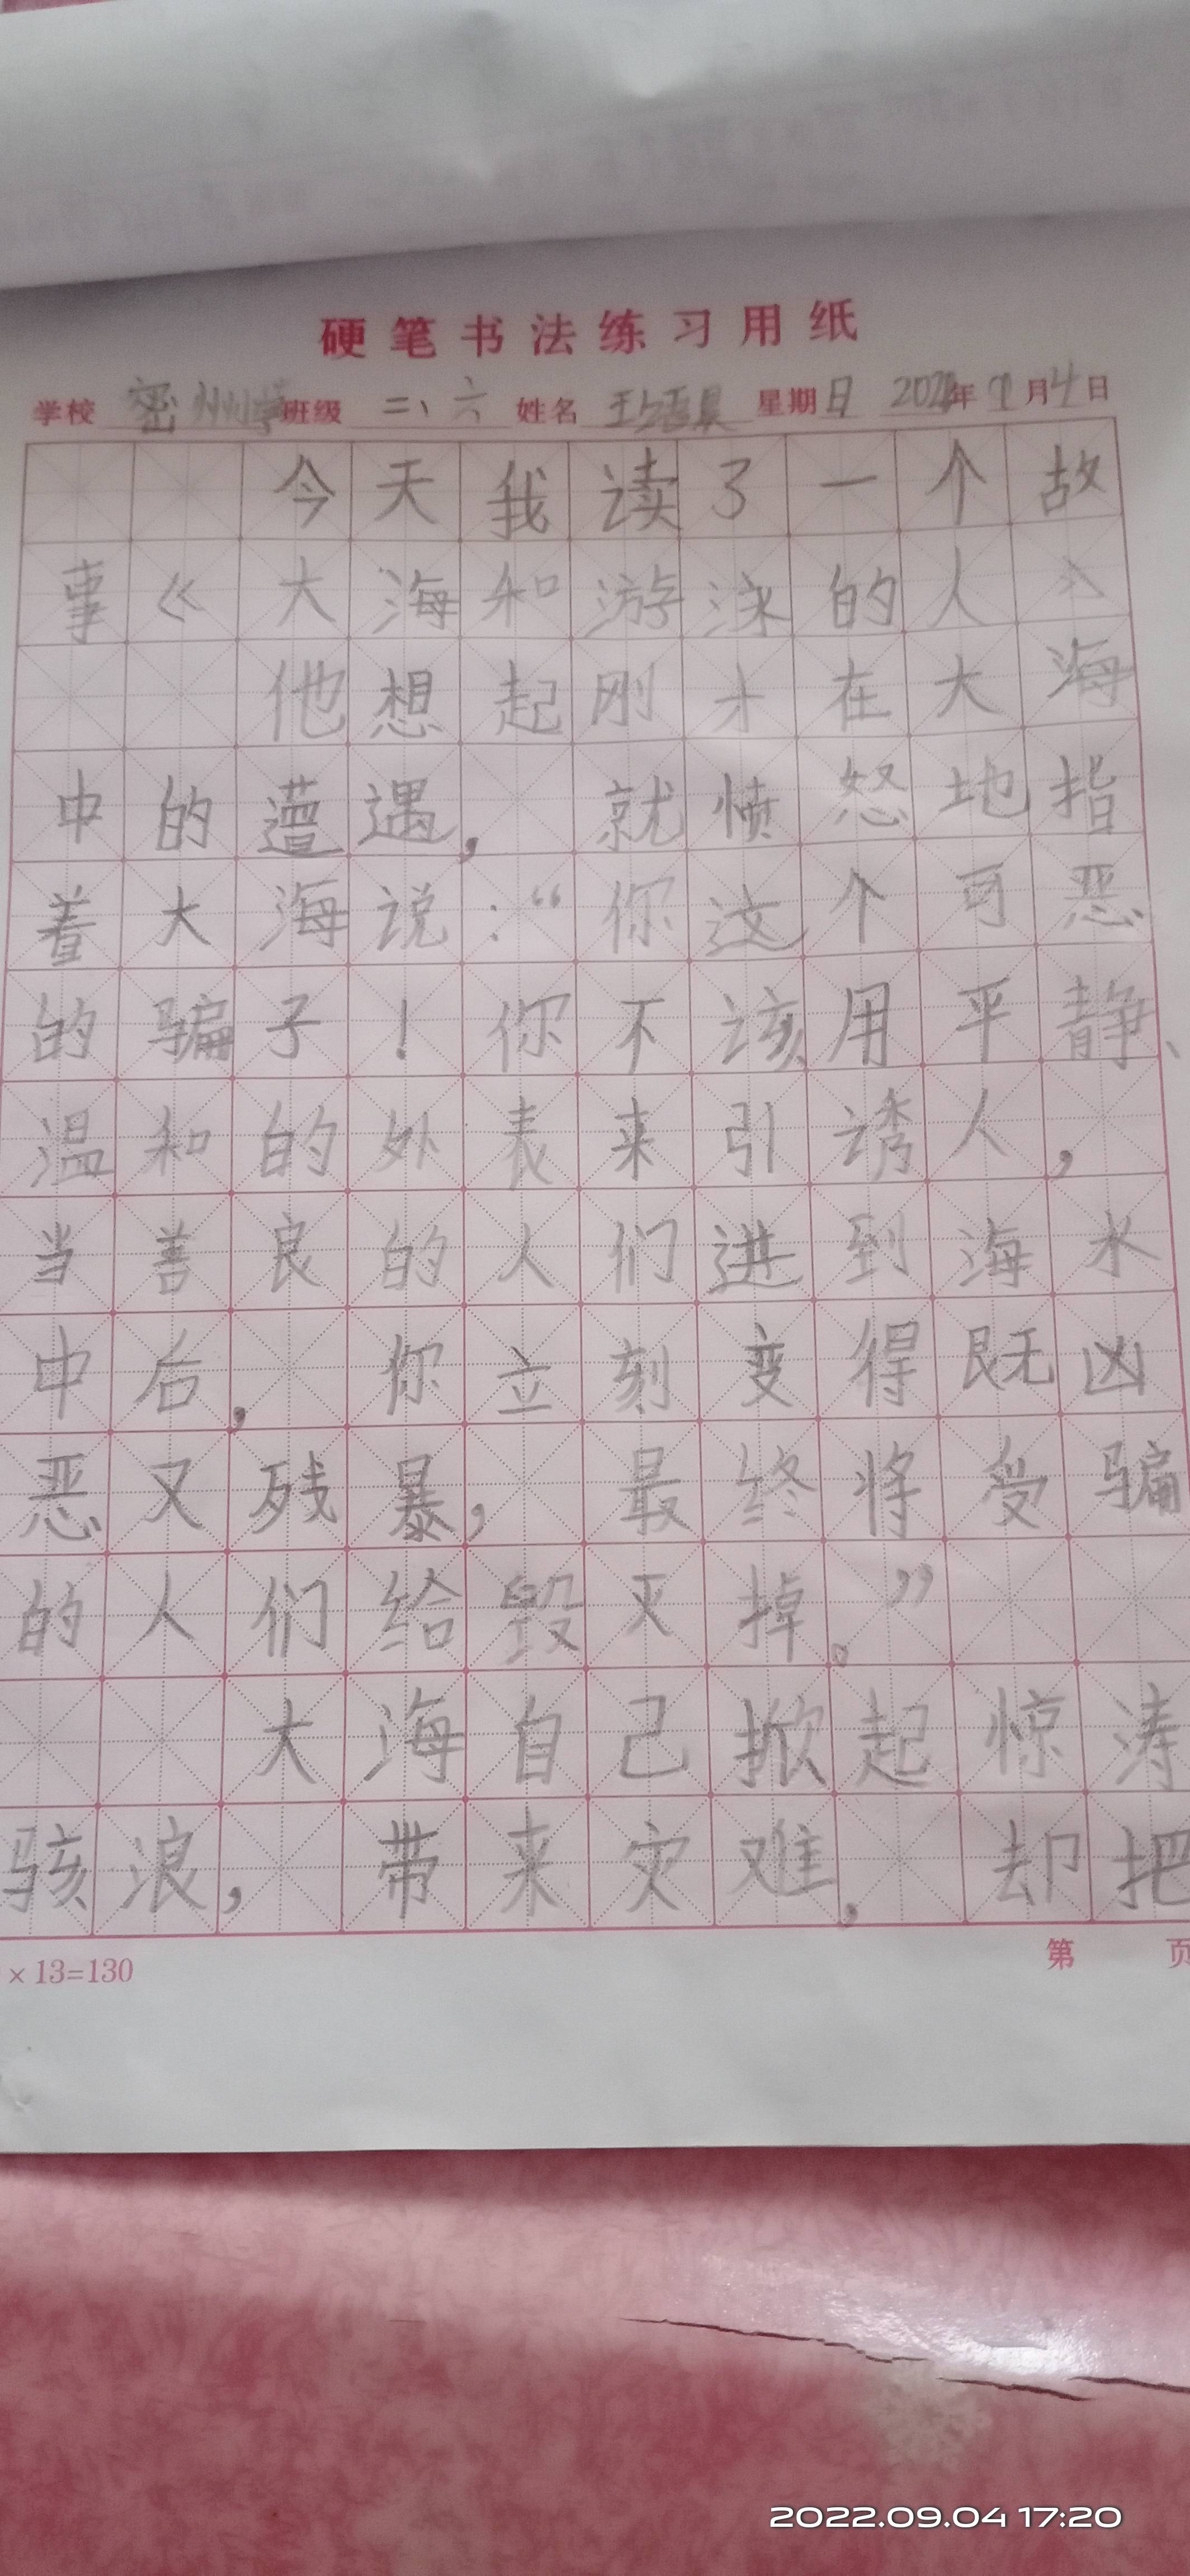 硬笔书法练习用纸
学校 密州小学 班级 二、六 姓名 星期日 202年 月4日
今天我读了一个故
事《大海和游泳的人》
他想起刚才在大海
中的遭遇，就愤怒地指
着大海说：“你这个可恶
的骗子！你不该用平静、
温和的外表来引诱人，
当善良的人们进到海水
中后，你立刻变得既凶
恶又残暴，最终将受骗
的人们给毁灭掉。”
大海自己掀起惊涛
骇浪，带来灾难，却把
×13=130
第 页
2022.09.04 17:20